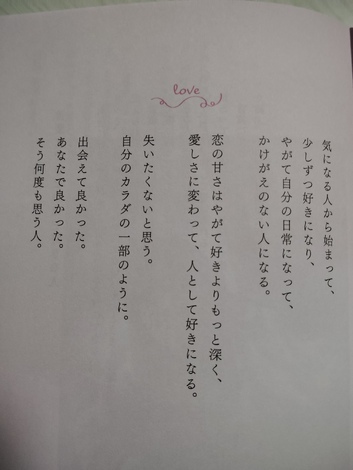 love
気になる人から始まって、
少しずつ好きになり、
やがて自分の日常になって、
かけがえのない人になる。
恋の甘さはやがて好きよりもっと深く、
愛しさに変わって、人として好きになる。
失いたくないと思う。
自分のカラダの一部のように。
出会えて良かった。
あなたで良かった。
そう何度も思う人。